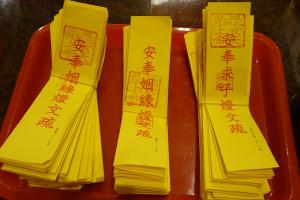 安奉姻緣燈文疏
安奉姻緣燈文疏
安奉求子燈文疏